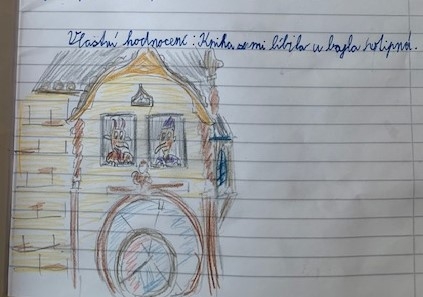 Vlastní hodnocení : Kniha se mi líbila a byla vtipná.